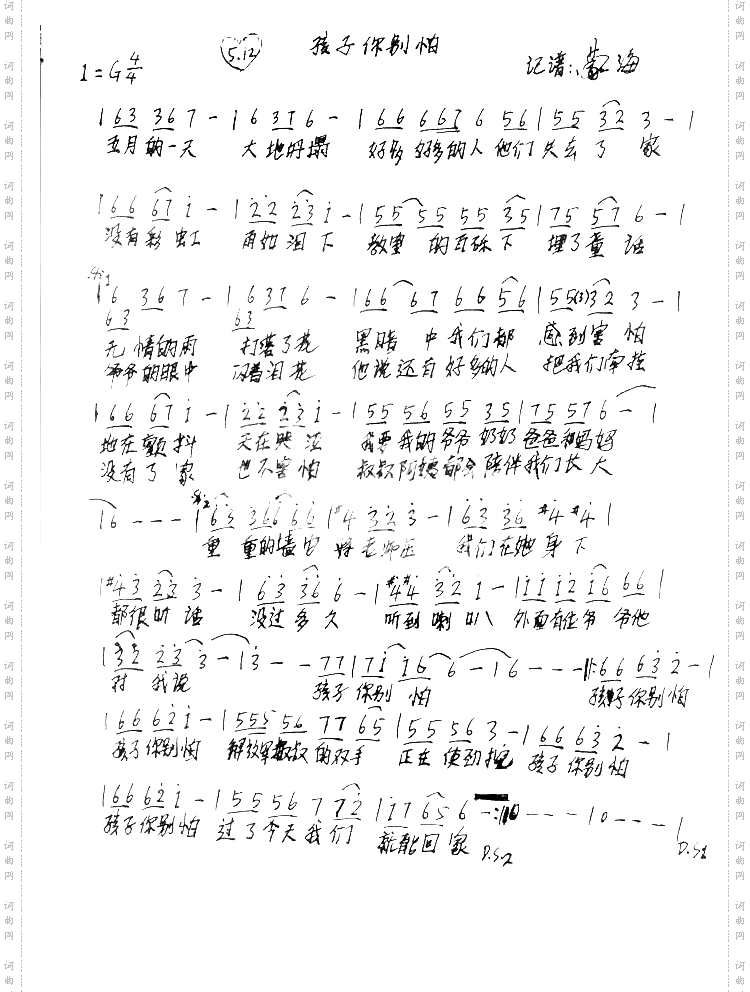 孩子你别怕
5.12
1=G 4/4
记谱: 海
| 6 3 3 6 7 - | 6 3 7 6 - | 6 6 6 6 7 6 5 6 | 5 5 3 2 3 - |
五月的一天 大地坍塌 好多好多的人他们失去了家
| 6 6 6 7 i - | 2 2 2 3 i - | 5 5 5 5 5 5 3 5 | 7 5 5 7 6 - |
没有彩虹 雨如泪下 教室的瓦砾下 埋了童话
| 6 3 6 7 - | 6 3 7 6 - | 6 6 6 7 6 6 5 6 | 5 5 (3) 3 2 3 - |
6 3 6 3
无情的雨 打落了花 黑暗中我们都感到害怕
爷爷的眼中 闪着泪花 他说还有好多的人把我们牵挂
| 6 6 6 7 i - | 2 2 2 3 i - | 5 5 5 6 5 5 3 5 | 7 5 5 7 6 - |
地在颤抖 天在哭泣 我要我的爷爷奶奶爸爸和妈妈
没有了家 也不害怕 叔叔阿姨都会陪伴我们长大
| 6 - - - | 6 3 3 6 6 6 6 | #4 3 2 3 - | 6 3 3 6 #4 #4 |
重重的墙 好老师 我们在她身下
| #4 3 2 3 3 - | 6 3 3 6 6 - | #4 #4 3 2 i - | i i i 2 i 6 6 6 |
都很听话 没过多久 听到喇叭 外面有位爷爷他
| 3 2 2 3 3 - | 3 - - 7 7 | 7 i i 6 6 - | 6 - - - |: 6 6 6 3 2 - |
对我说 孩子你别怕 孩子你别怕
| 6 6 6 2 i - | 5 5 5 5 6 7 7 6 5 | 5 5 5 6 3 - | 6 6 6 3 2 - |
孩子你别怕 解放军叔叔的双手正在使劲挖 孩子你别怕
| 6 6 6 2 i - | 5 5 5 5 6 7 7 2 | i i 7 6 5 6 - :| 0 - - - | 0 - - - |
孩子你别怕 过了今天我们就能回家 D.S2 D.S1
词曲网